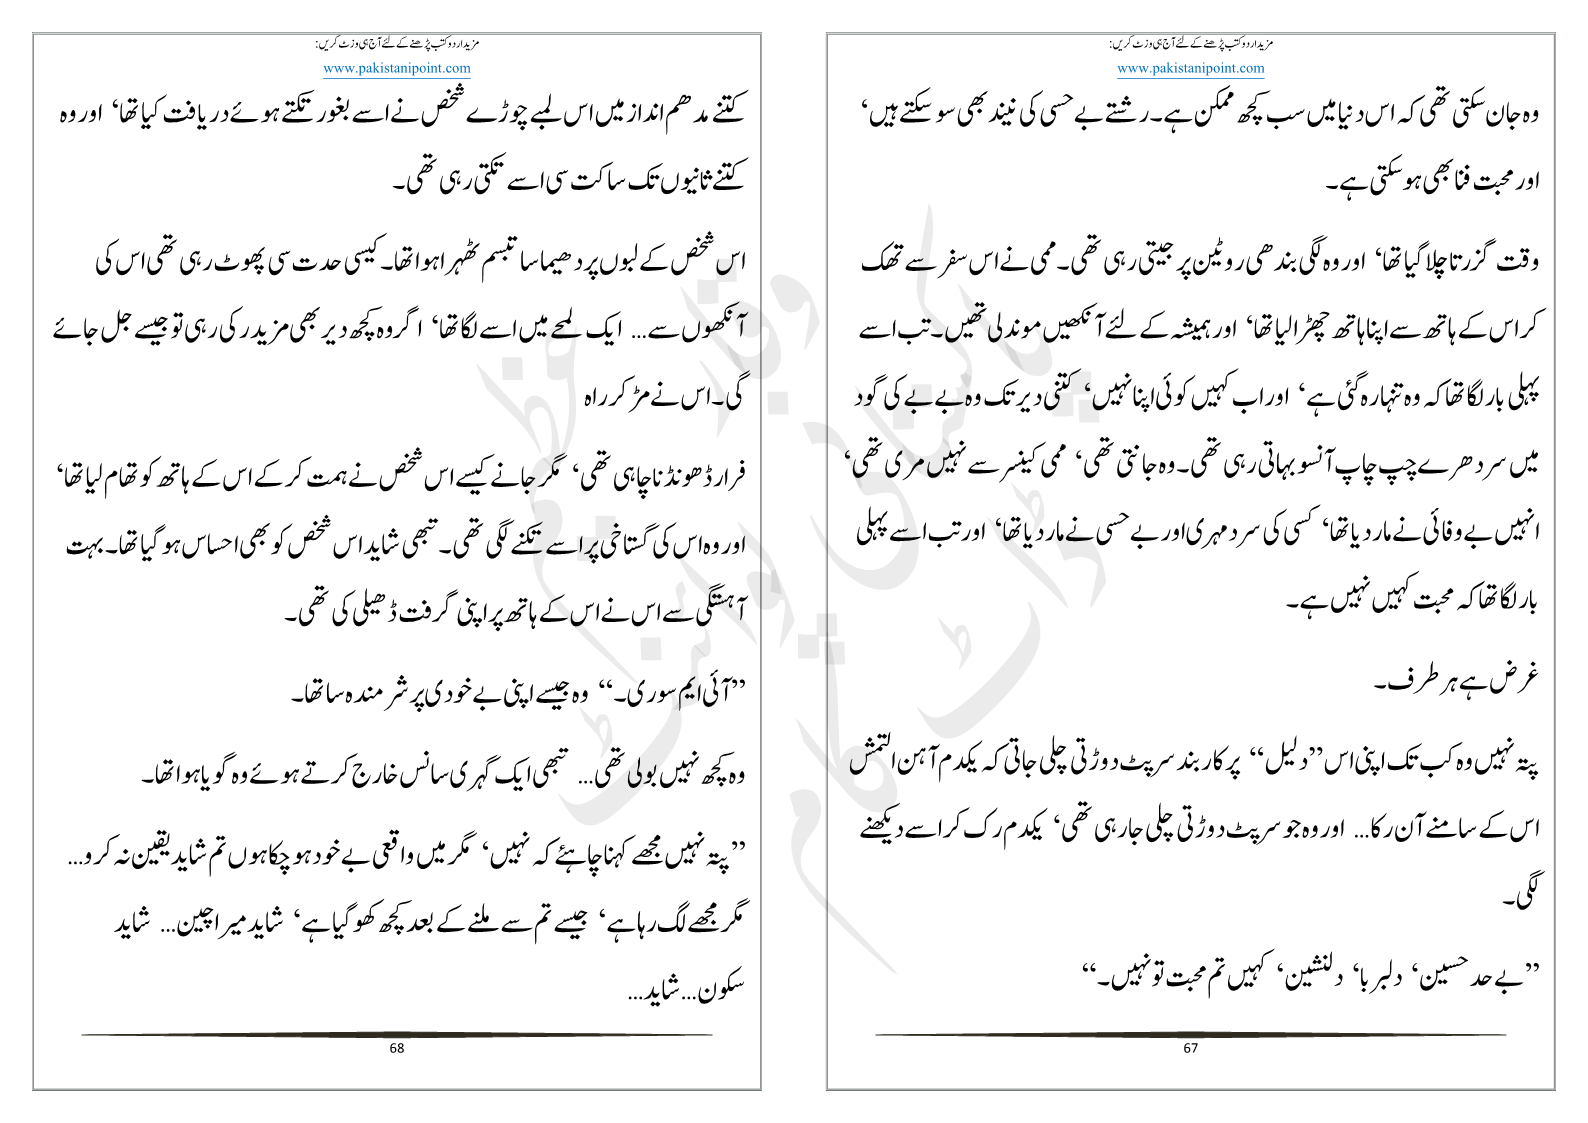 مزید اردو کتب پڑھنے کے لئے آج ہی وزٹ کریں:
www.pakistanipoint.com
وہ جان سکتی تھی کہ اس دنیا میں سب کچھ ممکن ہے۔ رشتے بے حسی کی نیند بھی سو سکتے ہیں‘
اور محبت فنا بھی ہو سکتی ہے۔
وقت گزرتا چلا گیا تھا‘ اور وہ لگی بندھی روٹین پر جیتی رہی تھی۔ ممی نے اس سفر سے تھک
کر اس کے ہاتھ سے اپنا ہاتھ چھڑا لیا تھا‘ اور ہمیشہ کے لئے آنکھیں موند لی تھیں۔ تب اسے
پہلی بار لگا تھا کہ وہ تنہا رہ گئی ہے‘ اور اب کہیں کوئی اپنا نہیں‘ کتنی دیر تک وہ بے بے کی گود
میں سر دھرے چپ چاپ آنسو بہاتی رہی تھی۔ وہ جانتی تھی‘ ممی کینسر سے نہیں مری تھی‘
انہیں بے وفائی نے مار دیا تھا‘ کسی کی سرد مہری اور بے حسی نے مار دیا تھا‘ اور تب اسے پہلی
بار لگا تھا کہ محبت کہیں نہیں ہے۔
غرض ہے ہر طرف۔
پتہ نہیں وہ کب تک اپنی اس ”دلیل“ پر کاربند سرپٹ دوڑتی چلی جاتی کہ یکدم آہن التمش
اس کے سامنے آن رکا... اور وہ جو سرپٹ دوڑتی چلی جا رہی تھی‘ یکدم رک کر اسے دیکھنے
لگی۔
”بے حد حسین‘ دلبربا‘ دلنشین‘ کہیں تم محبت تو نہیں۔“
67
مزید اردو کتب پڑھنے کے لئے آج ہی وزٹ کریں:
www.pakistanipoint.com
کتنے مدھم انداز میں اس لمبے چوڑے شخص نے اسے بغور تکتے ہوئے دریافت کیا تھا‘ اور وہ
کتنے ثانیوں تک ساکت سی اسے تکتی رہی تھی۔
اس شخص کے لبوں پر دھیما سا تبسم ٹھہرا ہوا تھا۔ کیسی حدت سی پھوٹ رہی تھی اس کی
آنکھوں سے... ایک لمحے میں اسے لگا تھا‘ اگر وہ کچھ دیر بھی مزید رکی رہی تو جیسے جل جائے
گی۔ اس نے مڑ کر راہ
فرار ڈھونڈنا چاہی تھی‘ مگر جانے کیسے اس شخص نے ہمت کر کے اس کے ہاتھ کو تھام لیا تھا‘
اور وہ اس کی گستاخی پر اسے تکنے لگی تھی۔ تبھی شاید اس شخص کو بھی احساس ہو گیا تھا۔ بہت
آہستگی سے اس نے اس کے ہاتھ پر اپنی گرفت ڈھیلی کی تھی۔
”آئی ایم سوری۔“ وہ جیسے اپنی بے خودی پر شرمندہ سا تھا۔
وہ کچھ نہیں بولی تھی... تبھی ایک گہری سانس خارج کرتے ہوئے وہ گویا ہوا تھا۔
”پتہ نہیں مجھے کہنا چاہئے کہ نہیں‘ مگر میں واقعی بے خود ہو چکا ہوں تم شاید یقین نہ کرو...
مگر مجھے لگ رہا ہے‘ جیسے تم سے ملنے کے بعد کچھ کھو گیا ہے‘ شاید میرا چین... شاید
سکون... شاید...
68